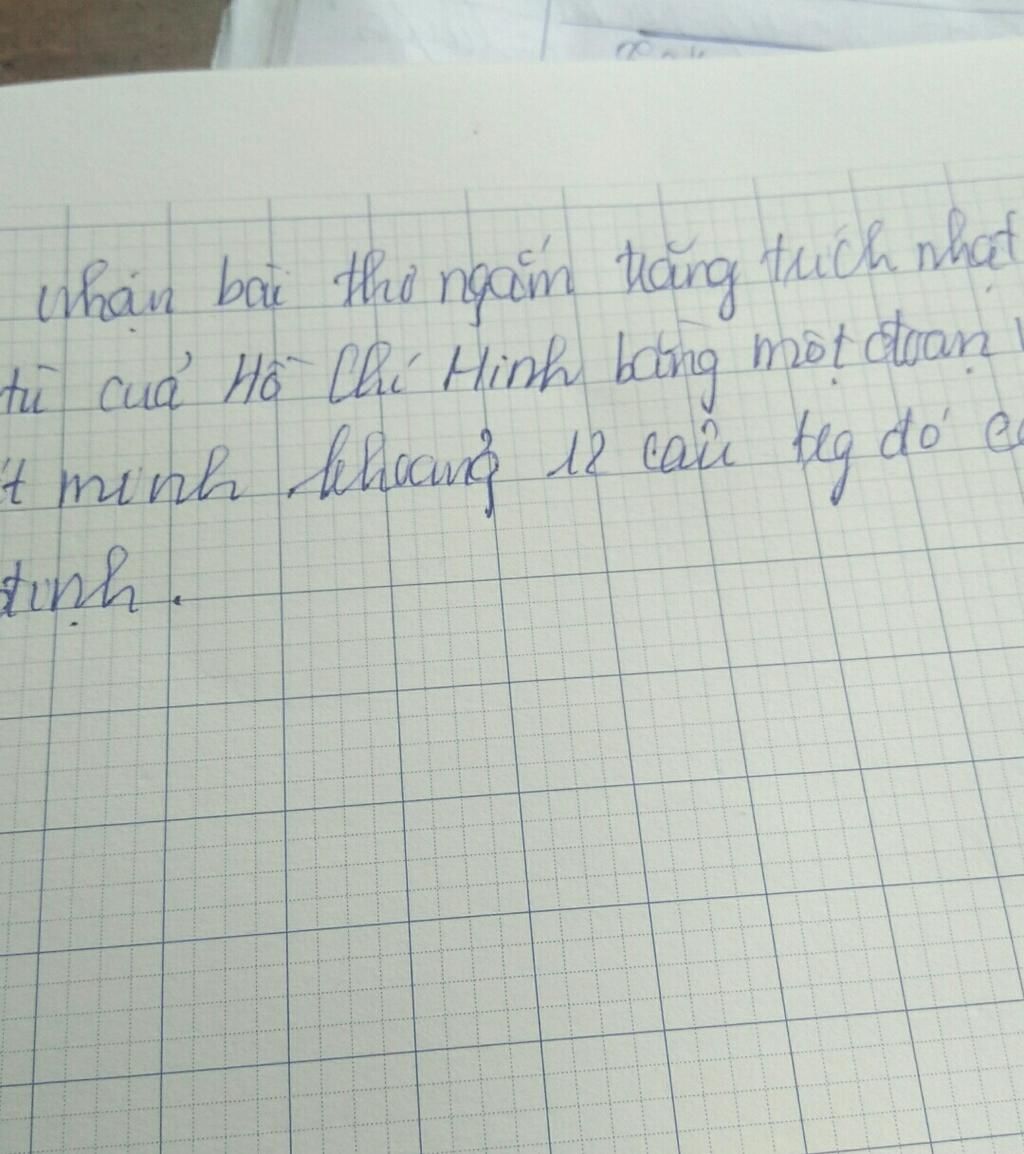 nhận bài thơ ngắm trăng trích nhật
tù của Hồ Chí Minh bằng một đoạn
minh khoảng 12 câu trg đó
định.